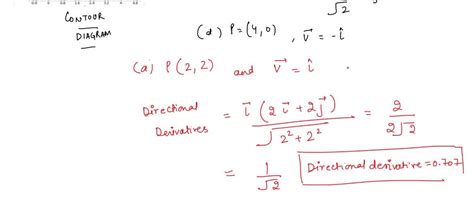 √2
CONTOUR
DIAGRAM
(d) P=(4,0), v⃗ = -î
(a) P(2,2) and v⃗ = î
Directional
Derivatives
= i⃗ (2 i⃗ + 2 j⃗) / √(2² + 2²) = 2 / 2√2
= 1/√2
Directional derivative = 0.707